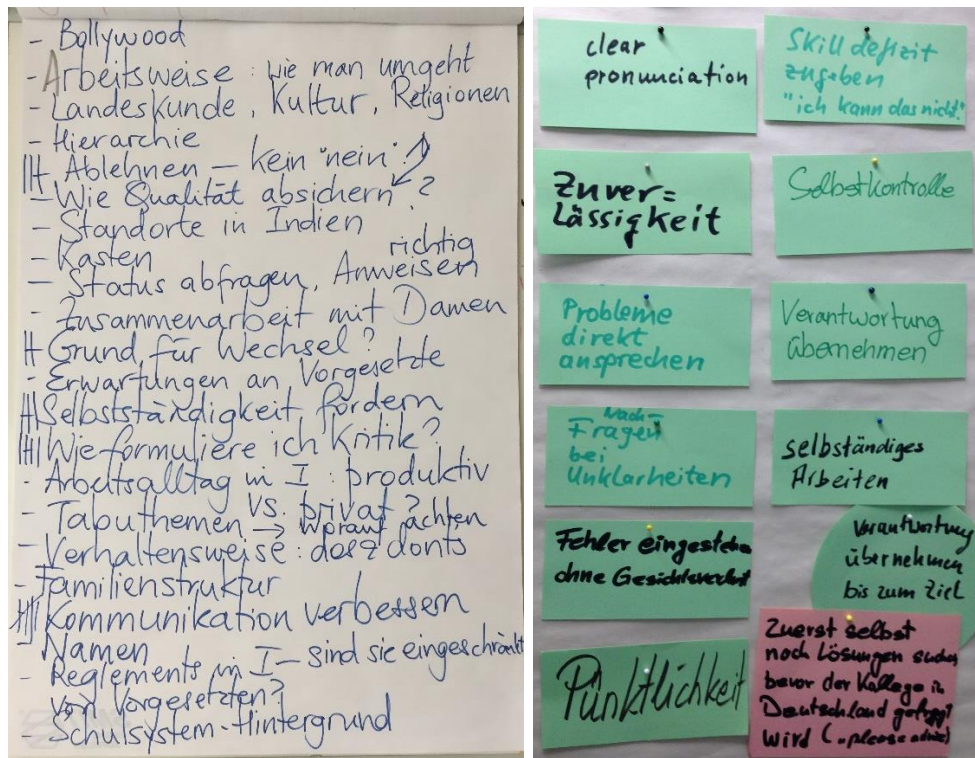 - Bollywood
- Arbeitsweise: wie man umgeht
- Landeskunde, Kultur, Religionen
- Hierarchie
- Ablehnen – kein "nein"
- Wie Qualität absichern?
- Standorte in Indien
- Kasten
richtig
- Status abfragen, Anweisen
- Zusammenarbeit mit Damen
Grund für Wechsel?
- Erwartungen an Vorgesetzte
Selbstständigkeit fördern
Wie formuliere ich Kritik?
- Arbeitsalltag in I: produktiv
vs. privat?
- Tabuthemen → worauf achten
- Verhaltensweise: dos & donts
- Familienstruktur
Kommunikation verbessern
- Namen
- Reglements in I – sind sie eingeschränkt
von Vorgesetzten?
- Schulsystem-Hintergrund
clear
pronunciation
Skill defizit
zugeben
"ich kann das nicht"
Zuver=
Lässigkeit
Selbstkontrolle
Probleme
direkt
ansprechen
Verantwortung
übernehmen
Nach-
Fragen
bei
Unklarheiten
selbständiges
Arbeiten
Fehler eingestehen
ohne Gesichtsverlust
Verantwortung
übernehmen
bis zum Ziel
Pünktlichkeit
Zuerst selbst
nach Lösungen suchen
bevor der Kollege in
Deutschland gefragt
wird ("please advise")